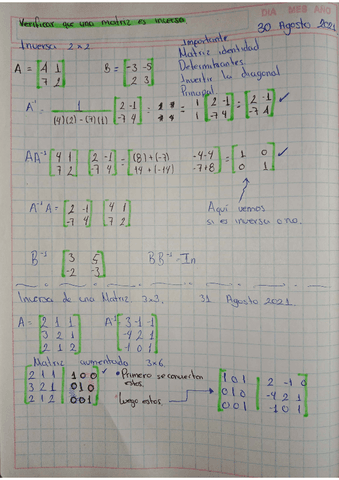 DIA MES AÑO
Verificar que una matriz es inversa
30 Agosto 2021
Importante
Matriz identidad
Determinantes
Invertir la diagonal
Principal
Inversa 2x2
A = [4 1
7 2]
B = [-3 -5
2 3]
A⁻¹ = 1/((4)(2)-(7)(1)) [2 -1
-7 4] = 1 [2 -1
-7 4] = [2 -1
-7 4] ✓
AA⁻¹ [4 1
7 2] [2 -1
-7 4] = [(8)+(-7) -4-4
14+(-14) -7+8] = [1 0
0 1] ✓
A⁻¹A = [2 -1
-7 4] [4 1
7 2]
Aquí vemos
si es inversa o no.
B⁻¹ [3 5
-2 -3]
BB⁻¹ = In
Inversa de una Matriz 3x3.
31 Agosto 2021.
A = [2 1 1
3 2 1
2 1 2]
A⁻¹ [3 -1 -1
-4 2 1
-1 0 1]
Matriz aumentada 3x6.
[2 1 1 | 1 0 0
3 2 1 | 0 1 0
2 1 2 | 0 0 1]
• Primero se convierten
estos.
• Luego estos
[1 0 1 | 2 -1 0
0 1 0 | -4 2 1
0 0 1 | -1 0 1]